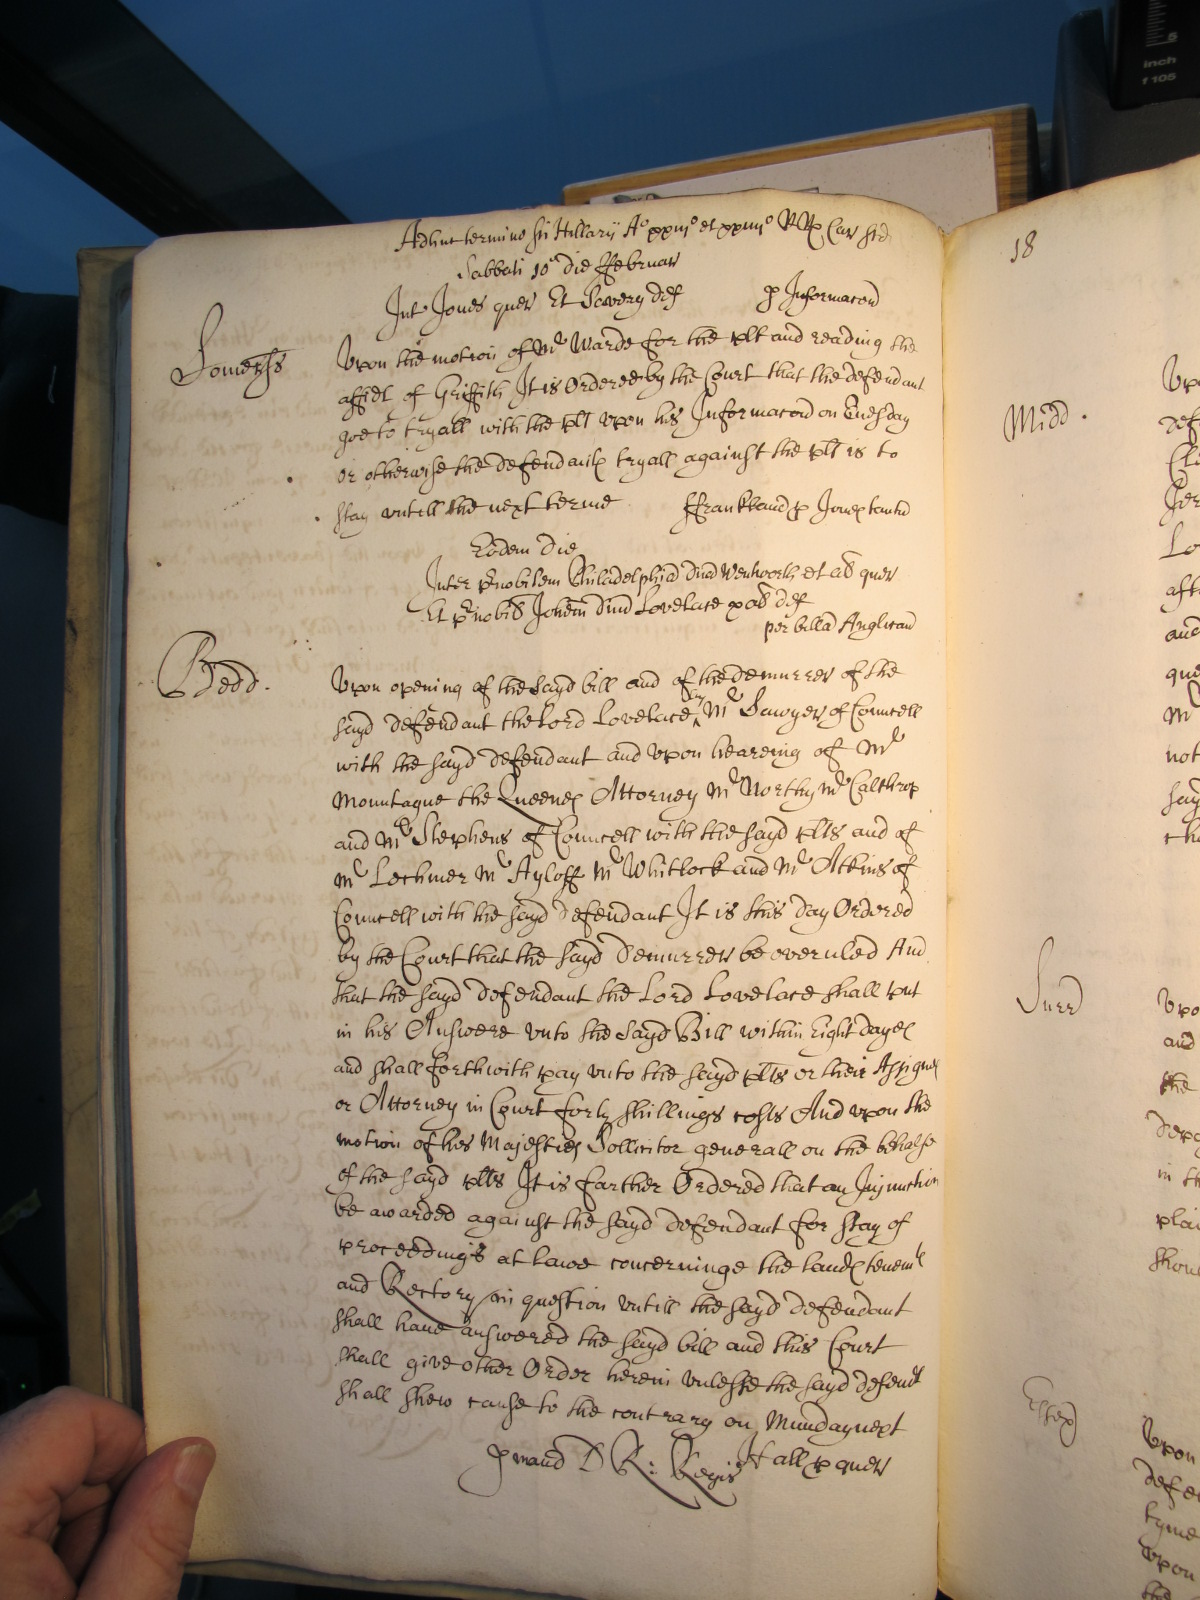 Adhuc termino Sci Hillarij Ao xxiijo et xxiiijo RRx Car scd
Sabbati 10o die ffebruar
Int Jones quer Et Savery def p Informacon
Somersts
Upon the motion of Mr Warde for the plt and reading the
affidt of Griffith It is Ordered by the Court that the defendant
goe to tryall with the plt upon his Informacon on Tuesday
or otherwise the defendants tryall against the plt is to
stay untill the next terme ffrankland p Jones
Eodem die
Inter Philadelphia dnam Wentworth et al quer
Et Johem dnm Lovelace al def
per billa Anglican
Bedd.
Upon opening of the sayd bill and of the demurrer of the
sayd defendant the Lord Lovelace by Mr Sawyer of Councell
with the sayd defendant and upon heareing of Mr
Mountague the Queenes Attorney Mr Northy Mr Calthrop
and Mr Stephens of Councell with the sayd plts and of
Mr Lechmer Mr Ayloff Mr Whitlock and Mr Atkins of
Councell with the sayd defendant It is this day Ordered
by the Court that the sayd demurrer be overuled And
that the sayd defendant the Lord Lovelace shall put
in his Answere unto the sayd Bill within Eight dayes
and shall forthwith pay unto the sayd plts or their Assignes
or Attorney in Court forty shillings costs And upon the
motion of his Majesties Sollicitor generall on the behalfe
of the sayd plts It is farther Ordered that an Injunction
be awarded against the sayd defendant for stay of
proceedings at lawe concerninge the lands tenemts
and Rectory in question untill the sayd defendant
shall have answered the sayd bill and this Court
shall give other Order herein unlesse the sayd defendt
shall shew cause to the contrary on Munday next
D R: Regis Hall p quer
18
Midd.
Surr
Essex
Upo
def
after
and
que
Mr
not
say
Upo
and
the
depo
in th
plai
shou
Upon
defe
tyme
upon
the
5
inch
f 105